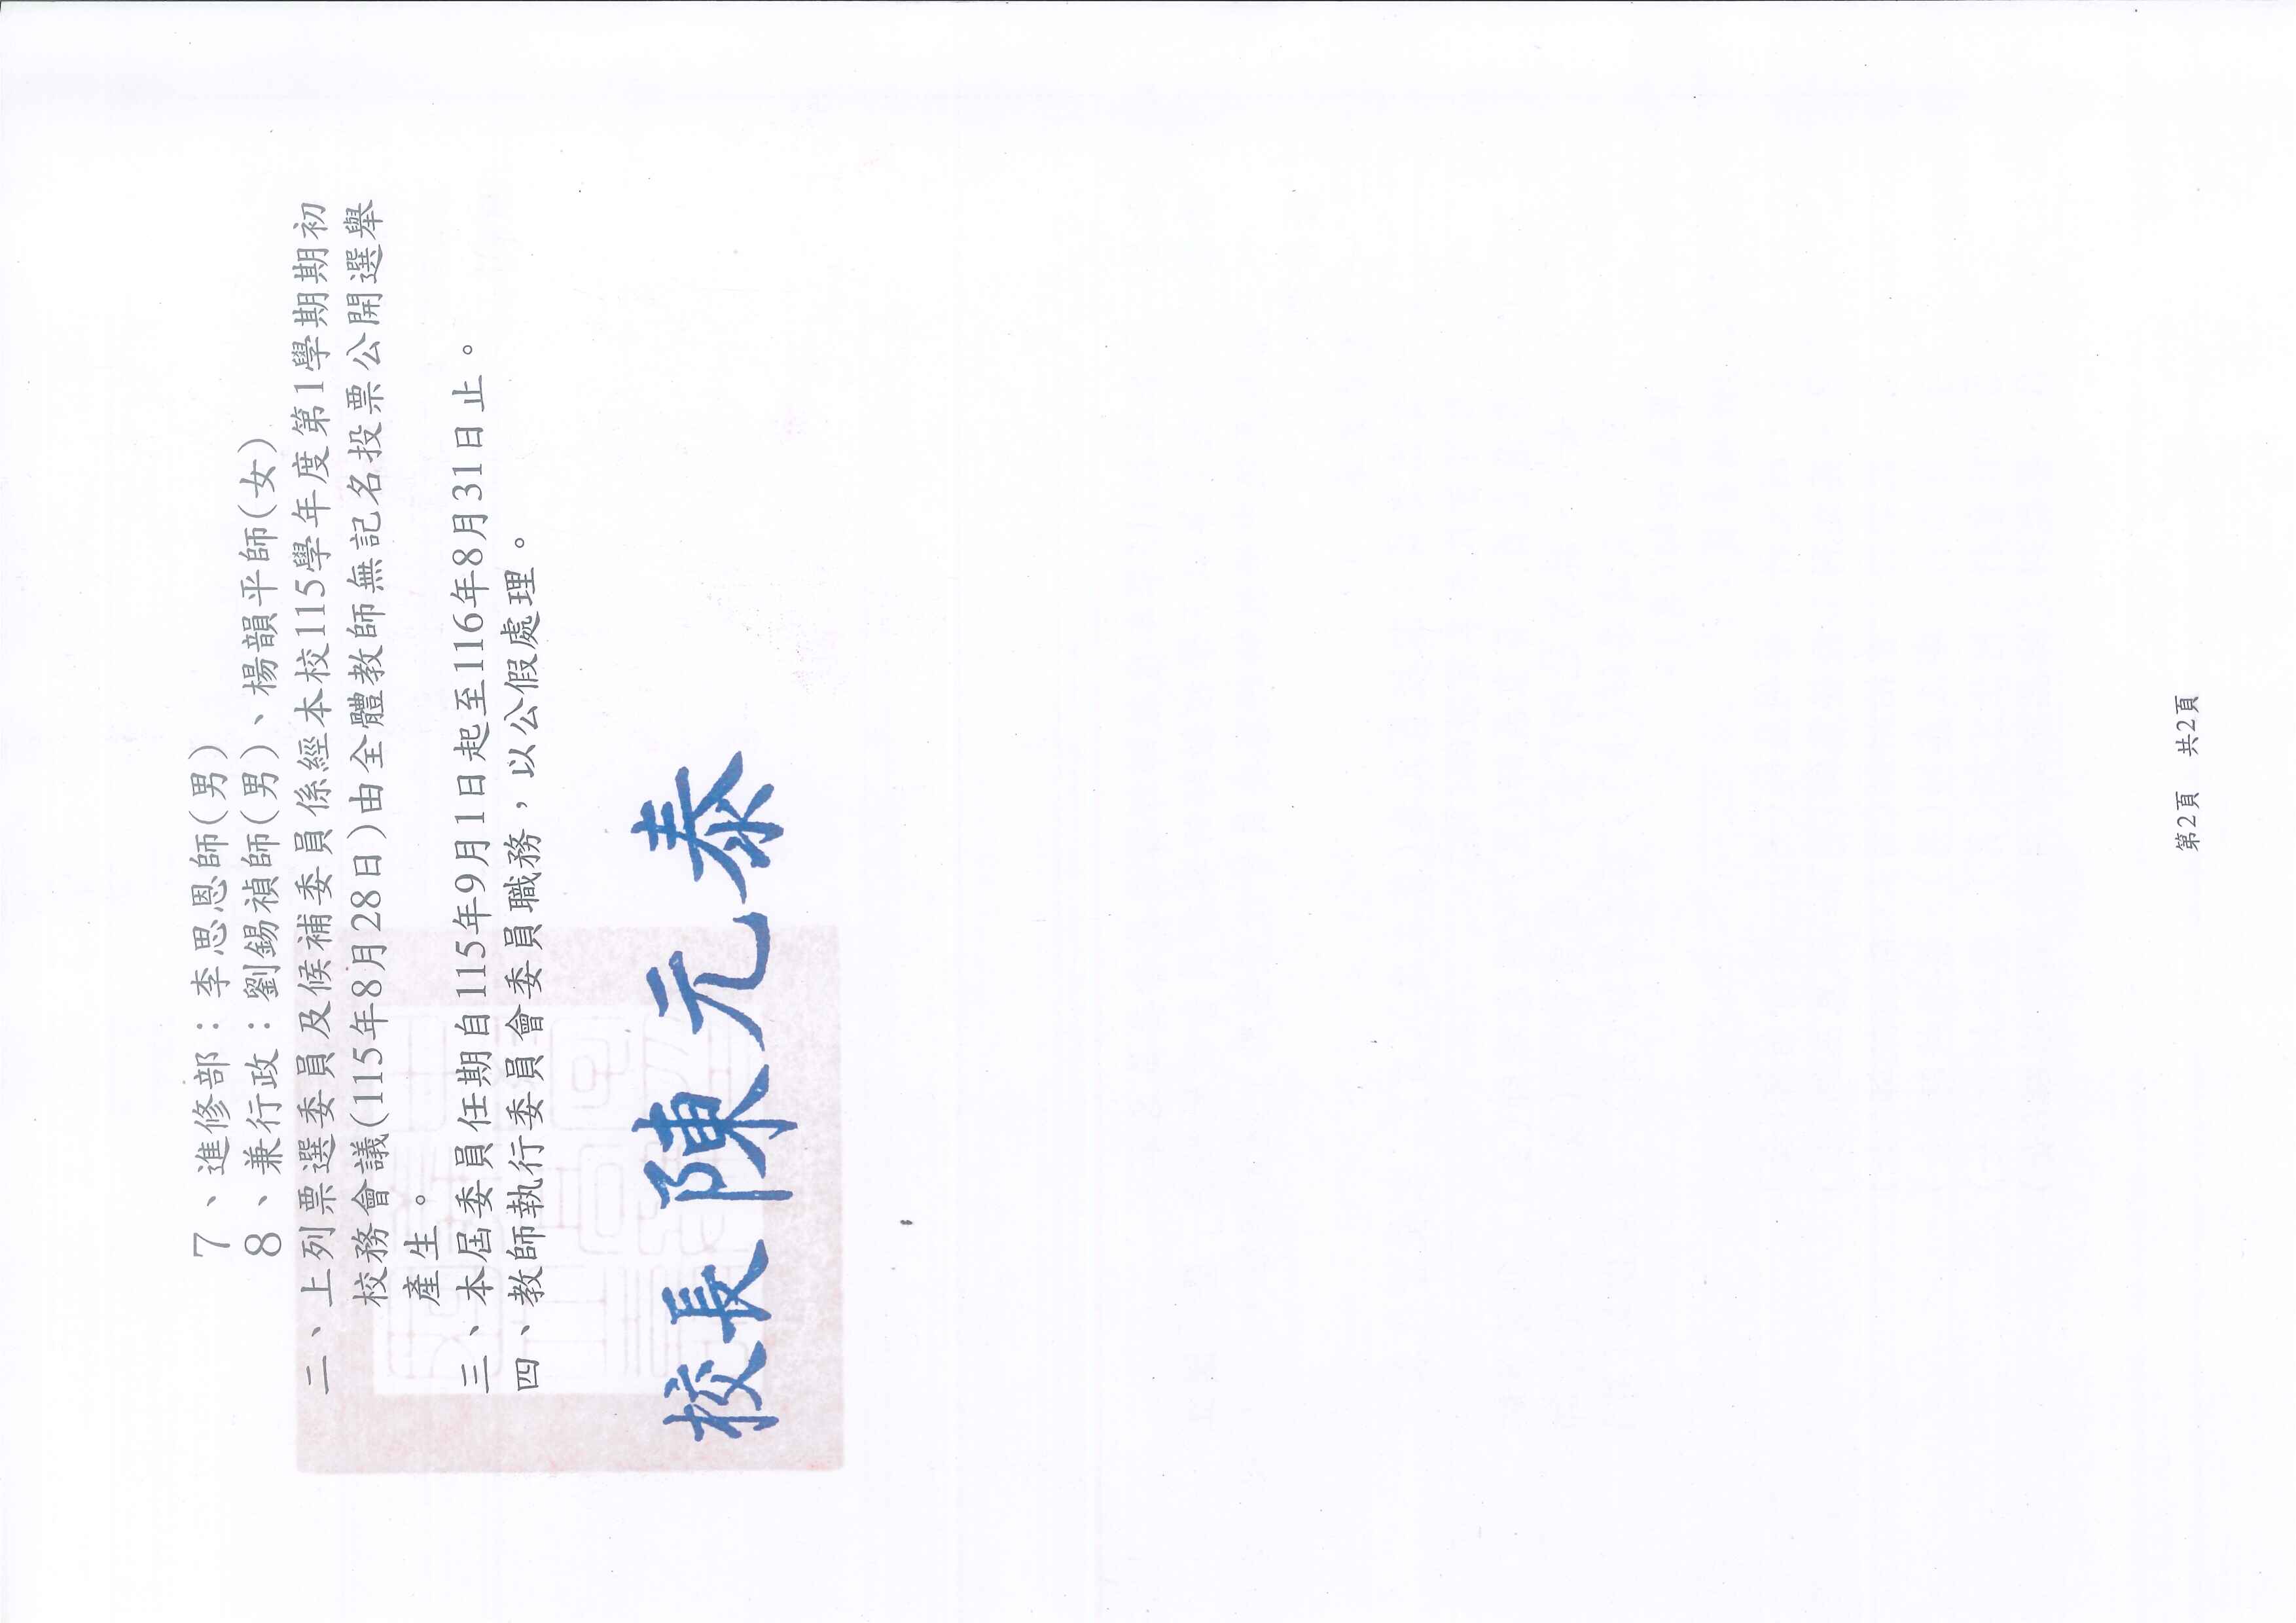 7、進修部：李思恩師(男)
8、兼行政：劉錫禎師(男)、楊韻平師(女)
二、上列票選委員及候補委員係經本校115學年度第1學期期初
校務會議(115年8月28日)由全體教師無記名投票公開選舉
產生。
三、本屆委員任期自115年9月1日起至116年8月31日止。
四、教師執行委員會委員職務，以公假處理。
校長 陳元泰
第2頁 共2頁